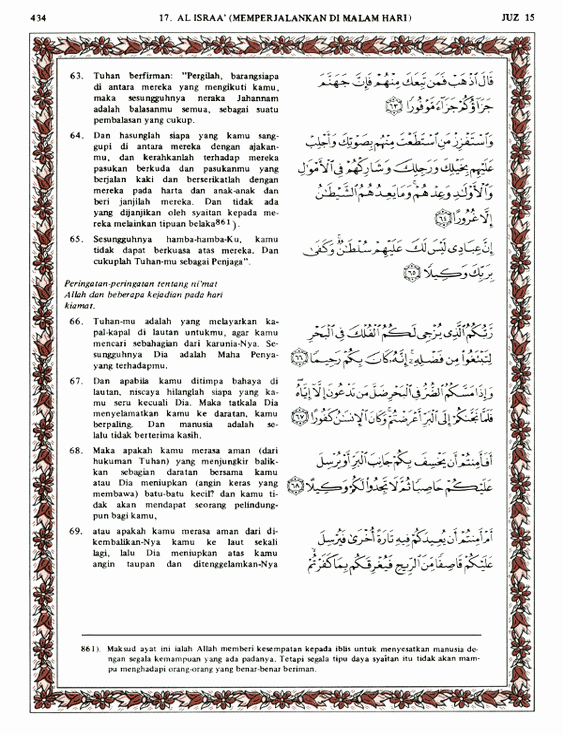 434
17. AL ISRAA' (MEMPERJALANKAN DI MALAM HARI)
JUZ 15
63. Tuhan berfirman: "Pergilah, barangsiapa
di antara mereka yang mengikuti kamu,
maka sesungguhnya neraka Jahannam
adalah balasanmu semua, sebagai suatu
pembalasan yang cukup.
64. Dan hasunglah siapa yang kamu sang-
gupi di antara mereka dengan ajakan-
mu, dan kerahkanlah terhadap mereka
pasukan berkuda dan pasukanmu yang
berjalan kaki dan berserikatlah dengan
mereka pada harta dan anak-anak dan
beri janjilah mereka. Dan tidak ada
yang dijanjikan oleh syaitan kepada me-
reka melainkan tipuan belaka861).
65. Sesungguhnya hamba-hamba-Ku, kamu
tidak dapat berkuasa atas mereka. Dan
cukuplah Tuhan-mu sebagai Penjaga".
Peringatan-peringatan tentang ni'mat
Allah dan beberapa kejadian pada hari
kiamat.
66. Tuhan-mu adalah yang melayarkan ka-
pal-kapal di lautan untukmu, agar kamu
mencari sebahagian dari karunia-Nya. Se-
sungguhnya Dia adalah Maha Penya-
yang terhadapmu.
67. Dan apabila kamu ditimpa bahaya di
lautan, niscaya hilanglah siapa yang ka-
mu seru kecuali Dia. Maka tatkala Dia
menyelamatkan kamu ke daratan, kamu
berpaling. Dan manusia adalah se-
lalu tidak berterima kasih.
68. Maka apakah kamu merasa aman (dari
hukuman Tuhan) yang menjungkir balik-
kan sebagian daratan bersama kamu
atau Dia meniupkan (angin keras yang
membawa) batu-batu kecil? dan kamu ti-
dak akan mendapat seorang pelindung-
pun bagi kamu,
69. atau apakah kamu merasa aman dari di-
kembalikan-Nya kamu ke laut sekali
lagi, lalu Dia meniupkan atas kamu
angin taupan dan ditenggelamkan-Nya
قَالَ ٱذْهَبْ فَمَن تَبِعَكَ مِنْهُمْ فَإِنَّ جَهَنَّمَ
جَزَآؤُكُمْ جَزَآءً مَّوْفُورًا ﴿٦٣﴾
وَٱسْتَفْزِزْ مَنِ ٱسْتَطَعْتَ مِنْهُم بِصَوْتِكَ وَأَجْلِبْ
عَلَيْهِم بِخَيْلِكَ وَرَجِلِكَ وَشَارِكْهُمْ فِى ٱلْأَمْوَٰلِ
وَٱلْأَوْلَـٰدِ وَعِدْهُمْ ۚ وَمَا يَعِدُهُمُ ٱلشَّيْطَـٰنُ
إِلَّا غُرُورًا ﴿٦٤﴾
إِنَّ عِبَادِى لَيْسَ لَكَ عَلَيْهِمْ سُلْطَـٰنٌ ۚ وَكَفَىٰ
بِرَبِّكَ وَكِيلًا ﴿٦٥﴾
رَّبُّكُمُ ٱلَّذِى يُزْجِى لَكُمُ ٱلْفُلْكَ فِى ٱلْبَحْرِ
لِتَبْتَغُوا۟ مِن فَضْلِهِۦٓ ۚ إِنَّهُۥ كَانَ بِكُمْ رَحِيمًا ﴿٦٦﴾
وَإِذَا مَسَّكُمُ ٱلضُّرُّ فِى ٱلْبَحْرِ ضَلَّ مَن تَدْعُونَ إِلَّآ إِيَّاهُ ۖ
فَلَمَّا نَجَّىٰكُمْ إِلَى ٱلْبَرِّ أَعْرَضْتُمْ ۚ وَكَانَ ٱلْإِنسَـٰنُ كَفُورًا ﴿٦٧﴾
أَفَأَمِنتُمْ أَن يَخْسِفَ بِكُمْ جَانِبَ ٱلْبَرِّ أَوْ يُرْسِلَ
عَلَيْكُمْ حَاصِبًا ثُمَّ لَا تَجِدُوا۟ لَكُمْ وَكِيلًا ﴿٦٨﴾
أَمْ أَمِنتُمْ أَن يُعِيدَكُمْ فِيهِ تَارَةً أُخْرَىٰ فَيُرْسِلَ
عَلَيْكُمْ قَاصِفًا مِّنَ ٱلرِّيحِ فَيُغْرِقَكُم بِمَا كَفَرْتُمْ ۙ
861). Maksud ayat ini ialah Allah memberi kesempatan kepada iblis untuk menyesatkan manusia de-
ngan segala kemampuan yang ada padanya. Tetapi segala tipu daya syaitan itu tidak akan mam-
pu menghadapi orang-orang yang benar-benar beriman.